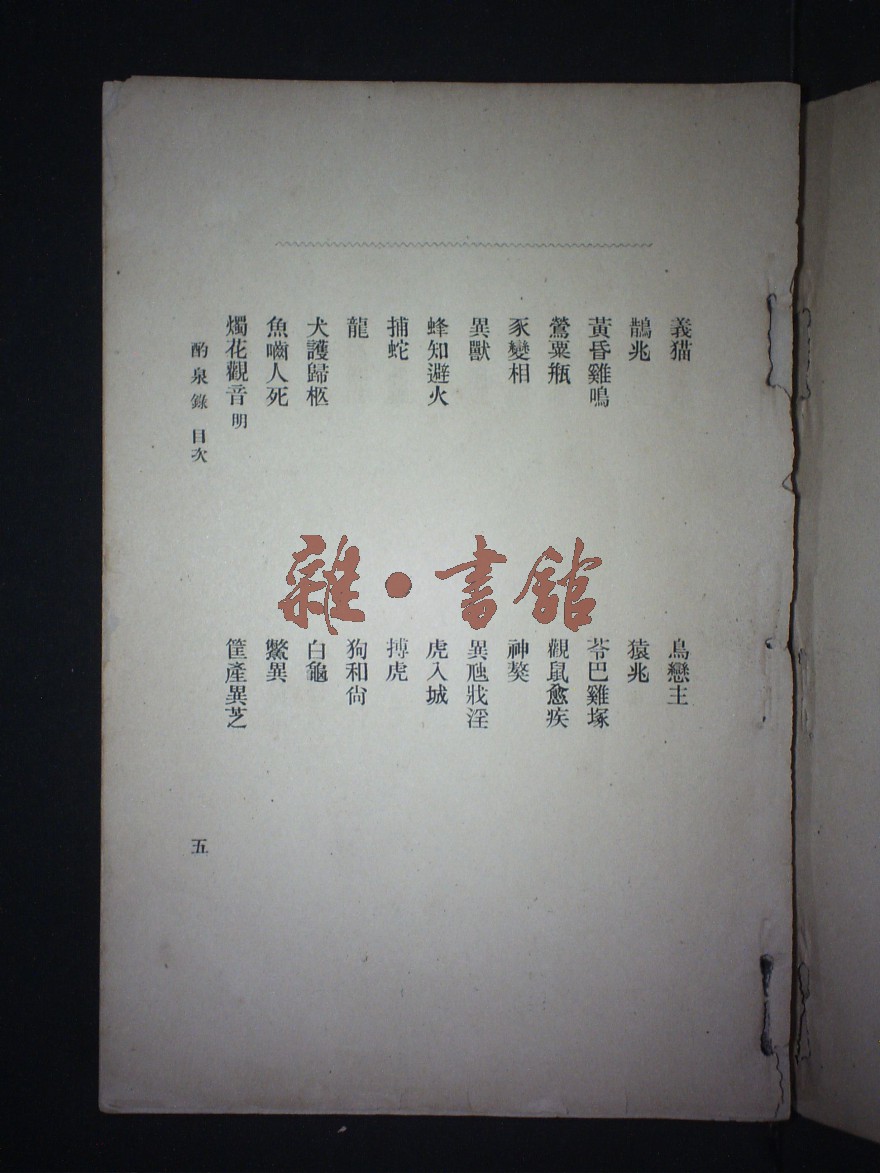 義猫
鳥戀主
鵲兆
猿兆
黃昏雞鳴
苓巴雞塚
鶯粟瓶
觀鼠愈疾
豕變相
神獒
異獸
異虺戕淫
蜂知避火
虎入城
捕蛇
搏虎
龍
狗和尙
犬護歸柩
白龜
魚嚙人死
鱉異
燭花觀音 明
筐產異芝
酌泉錄 目次
五
雜·書館